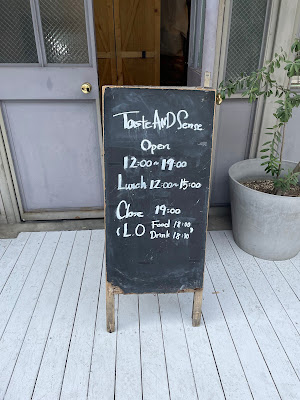 Taste AND Sense
Open
12:00~19:00
Lunch 12:00~15:00
Close 19:00
L.O Food 18:00
Drink 18:30